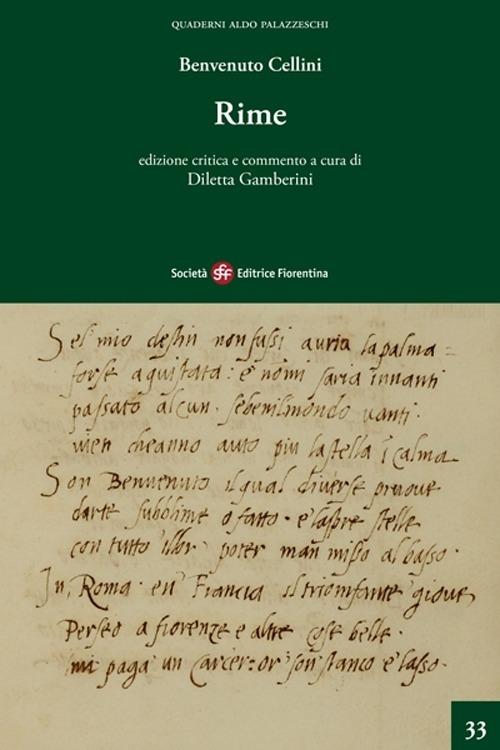 QUADERNI ALDO PALAZZESCHI
Benvenuto Cellini
Rime
edizione critica e commento a cura di
Diletta Gamberini
Società sff Editrice Fiorentina
Sel' mio destin non fussi auria la palma
forse aquistata: e nõmi saria innanti
passato alcun. sebenilmondo uanti.
uien cheanno auto piu la stella ĩ calma
Son Benuenuto ilqual diuerse pruoue
darte subblime ò fatto. e laspre stelle
con tutto illor. poter man misso al basso.
In, Roma. en Francia il triomfante gioue,
Perseo a fiorenze e altre cose belle.
mi paga un carcer: or son stanco e lasso.
33